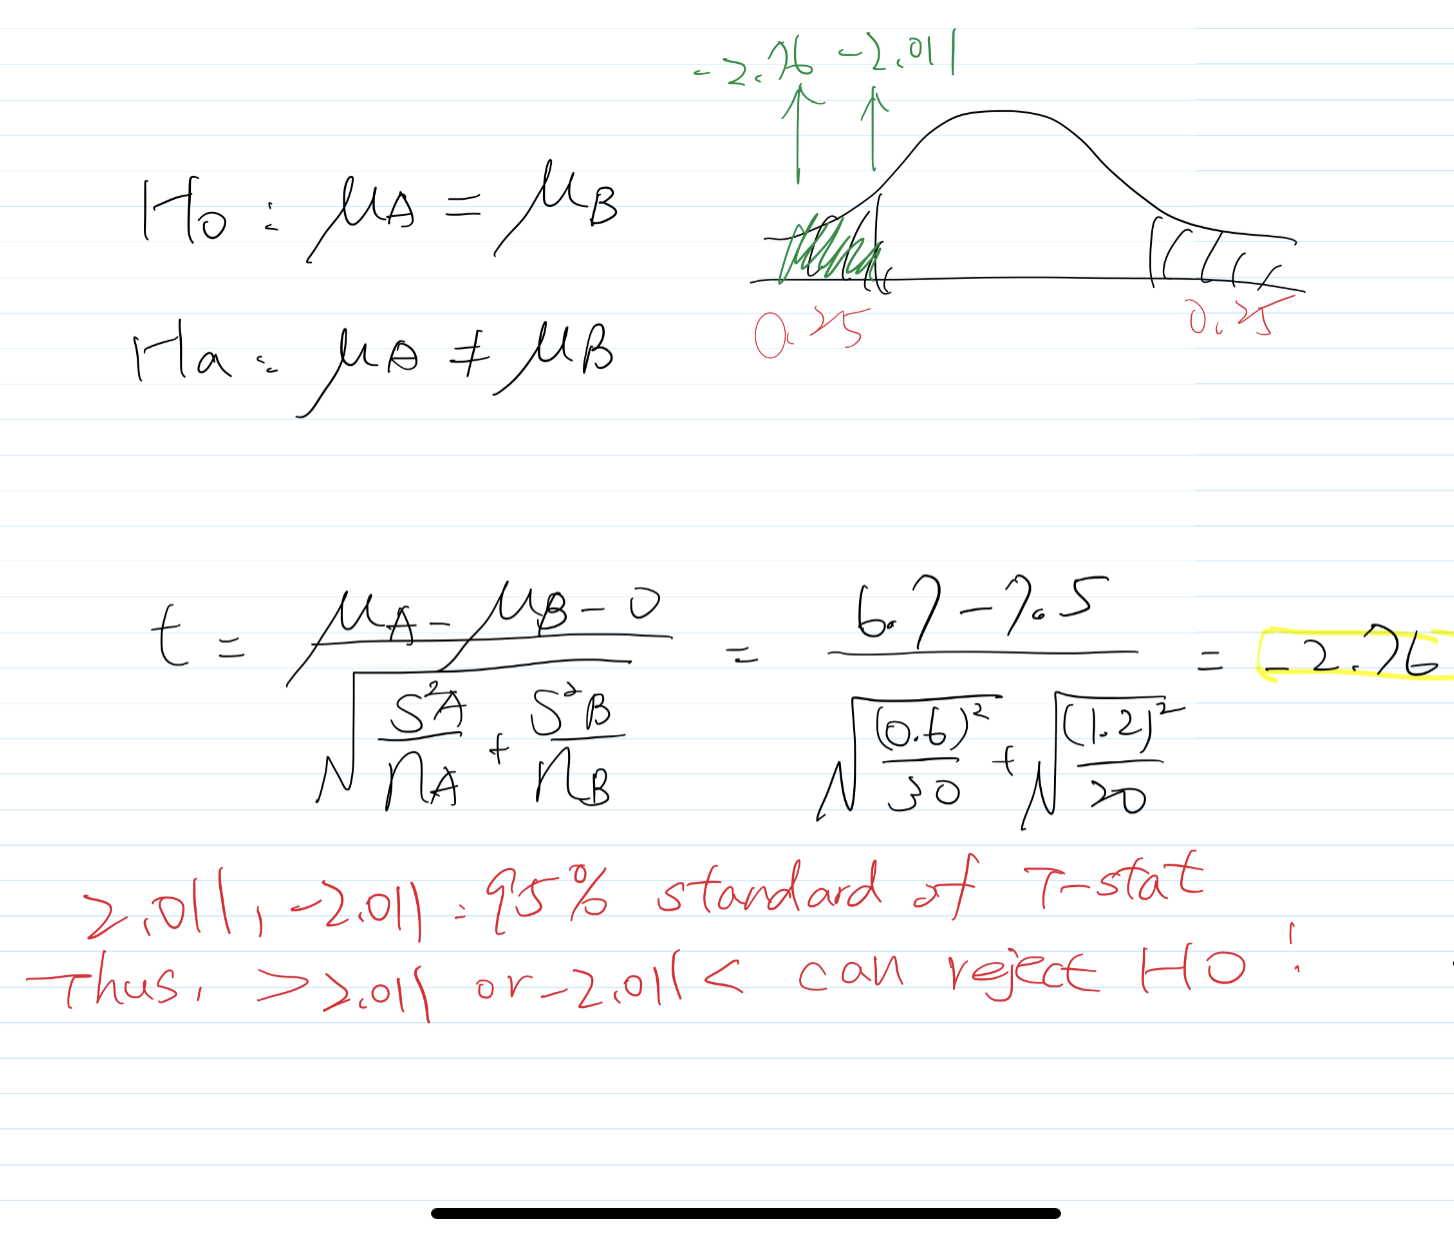 -2.76 -2.011
H0 : μA = μB
0.25 0.25
Ha : μA ≠ μB
t = (μA - μB - 0) / √(S²A/nA + S²B/nB) = (6.7 - 7.5) / (√((0.6)²/30) + √((1.2)²/20)) = -2.76
2.011, -2.011 : 95% standard of T-stat
Thus, >2.011 or -2.011< can reject H0!